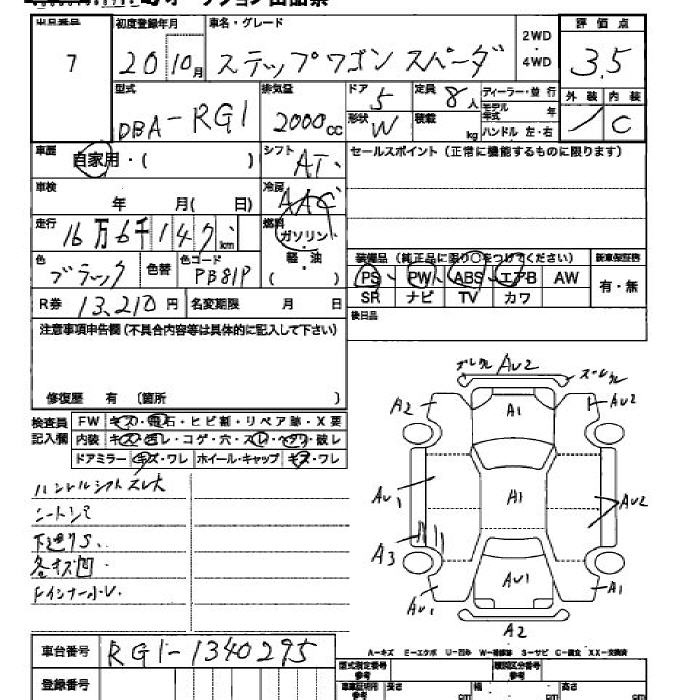 オークション出品票
出品番号 初度登録年月 車名・グレード 2WD・4WD 評価点
7 20 10月 ステップワゴン スパーダ 3.5
型式 排気量 ドア 5 定員 8人 ディーラー・並行 外装 内装
DBA-RG1 2000cc 形状 W 積載 kg モデル年式 年 C
ハンドル 左・右
車歴 自家用・( ) シフト AT セールスポイント(正常に機能するものに限ります)
車検 年 月( 日) 冷房 AAC
走行 16万6千147km 燃料 ガソリン・軽・油 ( )
色 ブラック 色替 色コード PB81P 装備品(純正品に限り○をつけてください) 新車保証書
PS PW ABS エアB AW 有・無
SR ナビ TV カワ
R券 13,210円 名変期限 月 日 後日品
注意事項申告欄(不具合内容等は具体的に記入して下さい)
修復歴 有 〔箇所 〕
検査員記入欄 FW キズ・飛石・ヒビ割・リペア跡・X要
内装 キズ・汚レ・コゲ・穴・スレ・ヘタリ・破レ
ドアミラー キズ・ワレ ホイール・キャップ キズ・ワレ
AU2
A2 A1 AU2
AU1 A1 AU2
A3
AU1 AU1 A1
A2
ハンドルシフトスレ大
シートシミ
下廻りS.
各キズ凹
A-キズ E-エクボ U-凹み W-補修跡 S-サビ C-腐食 XX-交換済
車台番号 RG1-1340295
登録番号
型式指定番号 参考 類別区分番号 参考
長さ cm 幅 cm 高さ cm